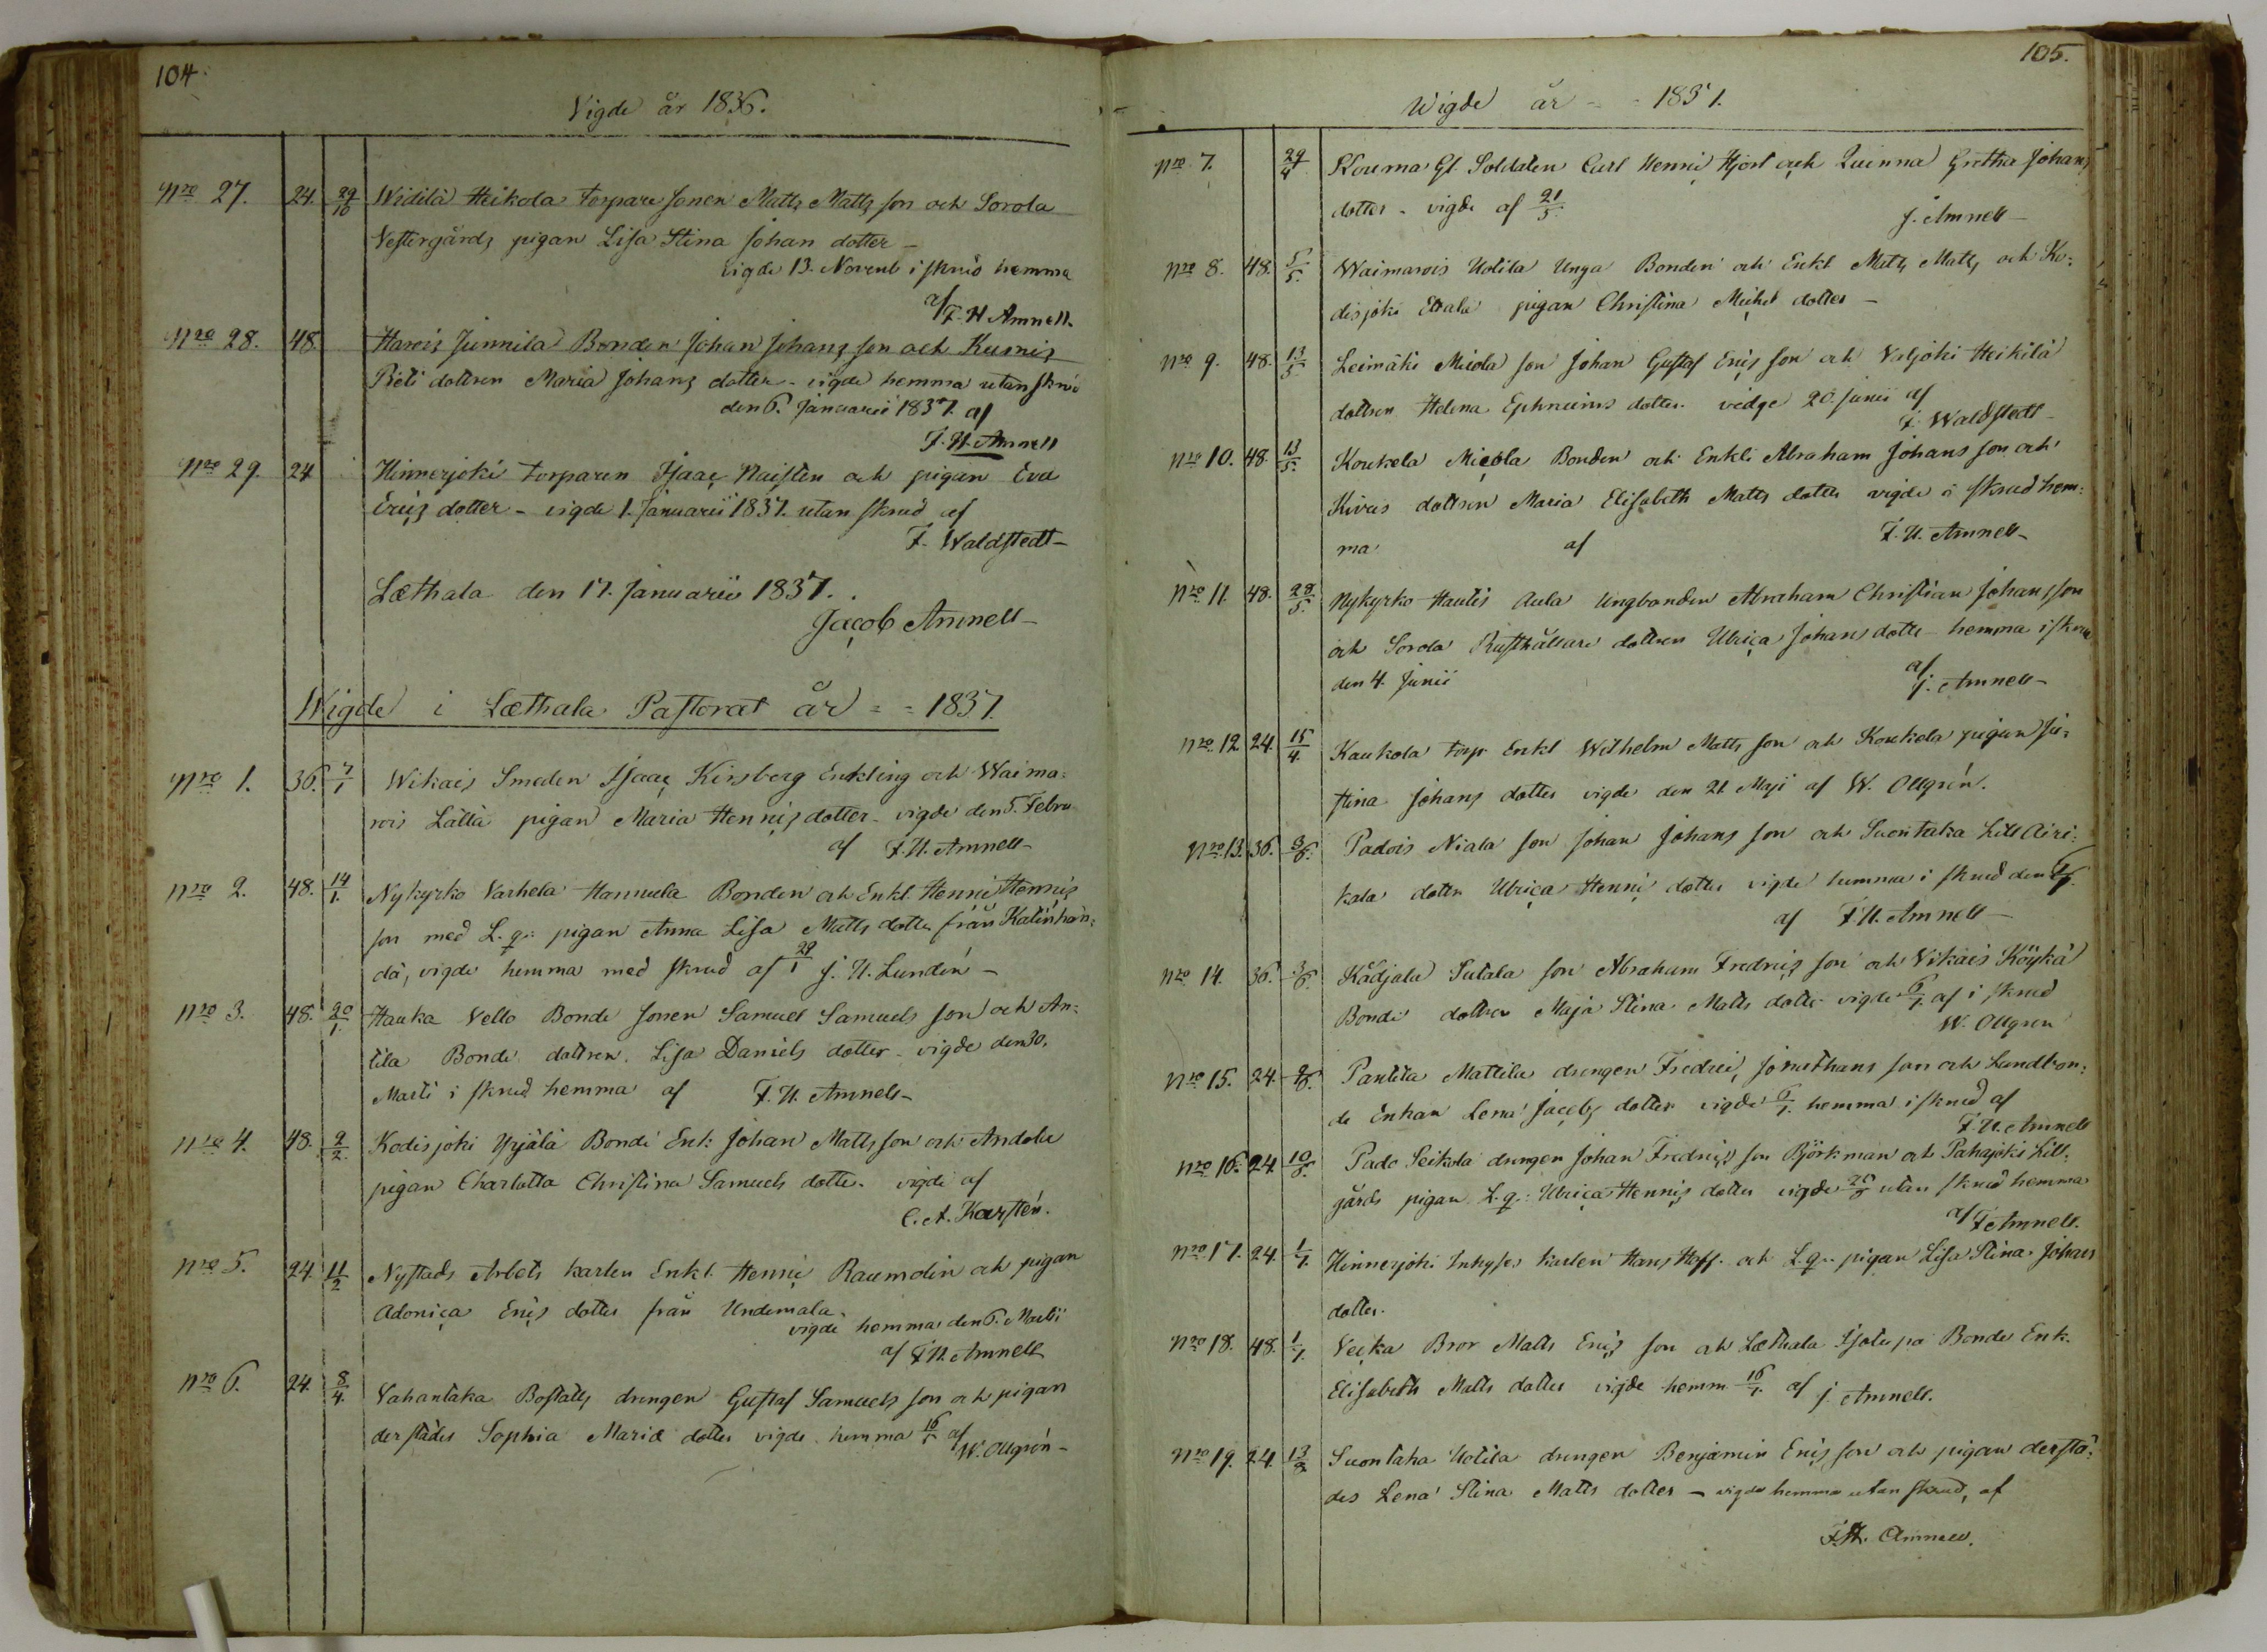 104.
Vigde år 1836.
Nro 27. 24. 29/10 Widilä Heikola torpare sonen Matts Matts son och Sorola
Vestergårds pigan Lisa Stina Johan dotter –
vigde 13. Novemb i skrud hemma
af F. H Amnell.
Nro 28. 48. Hareis Junnila Bonden Johan Johans son och Kusnis
Pieti dottren Maria Johans dotter – vigde hemma utan skrud
den 6. Januarii 1837. af
F. H. Amnell
Nro 29. 24 Hinnerjoki torparen Isaac Naisten och pigan Eva
Erics dotter – vigde 1. Januarii 1837. utan skrud af
F. Waldstedt –
Læthala den 17. Januarii 1837.
Jacob Amnell –
Wigde i Læthala Pastorat år = = 1837.
Nro 1. 36. 7/1 Wikais Smeden Isaac Kinsberg Enkling och Waima-
rois Lättä pigan Maria Henrics dotter – vigde den 5. Febru
af F. H. Amnell –
Nro 2. 48. 14/1. Nykyrko Varhela Hannula Bonden och Enkl. Henric Henrics
son med L. q: pigan Anna Lisa Matts dotter från Katinhän-
dä, vigde hemma med skrud af 29/1 J. H. Lundén –
Nro 3. 48. 20/1. Hauka Vello Bonde sonen Samuel Samuels son och An-
tila Bonde dottren Lisa Daniels dotter – vigde den 30.
Marti i skrud hemma af F. H. Amnell –
Nro 4. 48. 2/2. Kodisjoki Yrjälä Bonde Enk: Johan Matts son och Andola
pigan Charlotta Christina Samuels dotter – vigde af
C. A. Karstén.
Nro 5. 24. 11/2 Nystads Arbets karlen Enkl. Henric Raumolin och pigan
Adonica Erics dotter från Undemala.
vigde hemma den 6. Martii
af F. H. Amnell
Nro 6. 24. 8/4. Vahantaka Bostatts drengen Gustaf Samuels son och pigan
derstädes Sophia Mariæ dotter vigde hemma 16/5 af
W. Ollgrén –
105.
Wigde år = = 1837.
Nro 7. 29/4 Kouma Gl. Soldaten Carl Henric Hjort och Quinna Gretha Johans
dotter – vigde af 21/5.
J. Amnell –
Nro 8. 48. 5/5. Waimarois Uotila Unga Bonden och Enkl Matts Matts och Ko-
disjoki Etala pigan Christina Michel dotter –
Nro 9. 48. 13/5 Leimäki Micola son Johan Gustaf Erics son och Valjoki Heikilä
dottren Helena Ephraims dotter. vidge 20. Junii af
F. Waldstedt –
Nro 10. 48. 13/5. Koukela Micola Bonden och Enkli Abraham Johans son och
Kivus dottren Maria Elisabeth Matts dotter vigde i skrud hem-
ma af F. H. Amnell –
Nro 11. 48. 28/5. Nykyrko Hautis Aula Ungbonden Abraham Christian Johans son
och Sorola Rusthållare dottren Ulrica Johans dotter hemma i skrud
den 4. Junii af
J. Amnell –
Nro 12 24. 15/4. Kaukola torp Enkl Wilhelm Matts son och Koukela pigan Ju-
stina Johans dotter vigde den 21 Maji af W. Ollgrén.
Nro 13. 36. 3/6. Padois Niala son Johan Johans son och Suontaka Lill Airi-
kala dottn Ulrica Henric dotter vigde hemma i skrud den
af F. H. Amnell –
Nro 14. 36. 3/6. Kådjala Sutala son Abraham Fredrics son och Vikais Köykä
Bonde dottren Maja Stina Matts dotter vigde 6/7. af i skrud
W. Ollgren
Nro 15. 24. Pantila Mattila drengen Fredric Jonathans son och Landbon-
de Enkan Lena Jacobs dotter vigde 6/7. hemma i skrud af
F. H. Amnell
Nro 16. 24 10/6. Pado Seikola drengen Johan Fredrics son Björkman och Pahajoki Lill-
gårds pigan L. q: Ulrica Henrics dotter vigde utan skrud hemma
af F Amnell.
Nro 17. 24. 1/7. Hinnerjoki Inhyses karlen Hans Hoff. och L. q: pigan Lisa Stina Johans
dotter.
Nro 18. 48. 1/7. Vecka Bror Matts Erics son och Læthala Isotupa Bonde Enk.
Elisabeth Matts dotter vigde hemm 16/7. af J. Amnell.
Nro 19. 24. 13/8 Suontaka Uotila drengen Benjamin Erics son och pigan derstä-
des Lena Stina Matts dotter – vigde hemma utan skrud, af
F. H. Amnell.